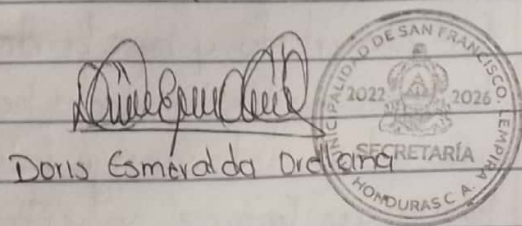 Doris Esmeralda Orellana
MUNICIPALIDAD DE SAN FRANCISCO, LEMPIRA
2022 2026
SECRETARÍA
HONDURAS C. A.